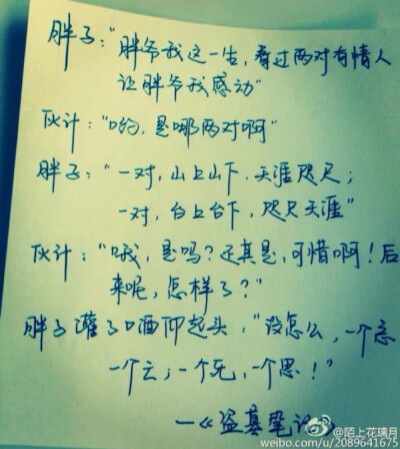 胖子:“胖爷我这一生，看过两对有情人
让胖爷我感动”
伙计:“哟，是哪两对啊”
胖子:“一对，山上山下，天涯咫尺；
一对，台上台下，咫尺天涯”
伙计:“哦，是吗？还真是，可惜啊！后
来呢，怎样了？”
胖子灌了口酒仰起头，“没怎么，一个忘
一个亡，一个死，一个思！”
—《盗墓笔记》
@陌上花璃月
weibo.com/u/2089641675